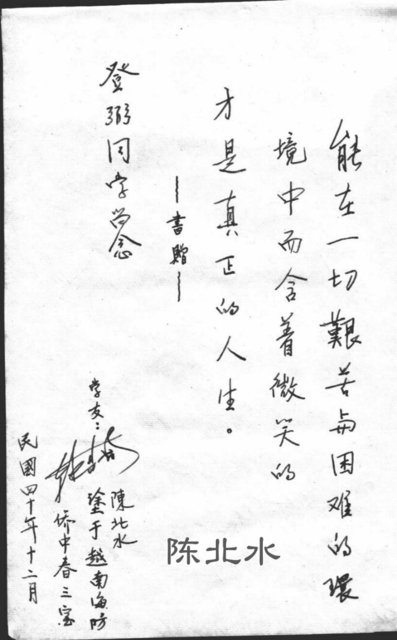 能在一切艱苦与困难的環
境中而含着微笑的
才是真正的人生。
書贈
登弼同学留念
学友：
陳北水
塗于越南海防
侨中春三室
民國四十年十二月
陈北水